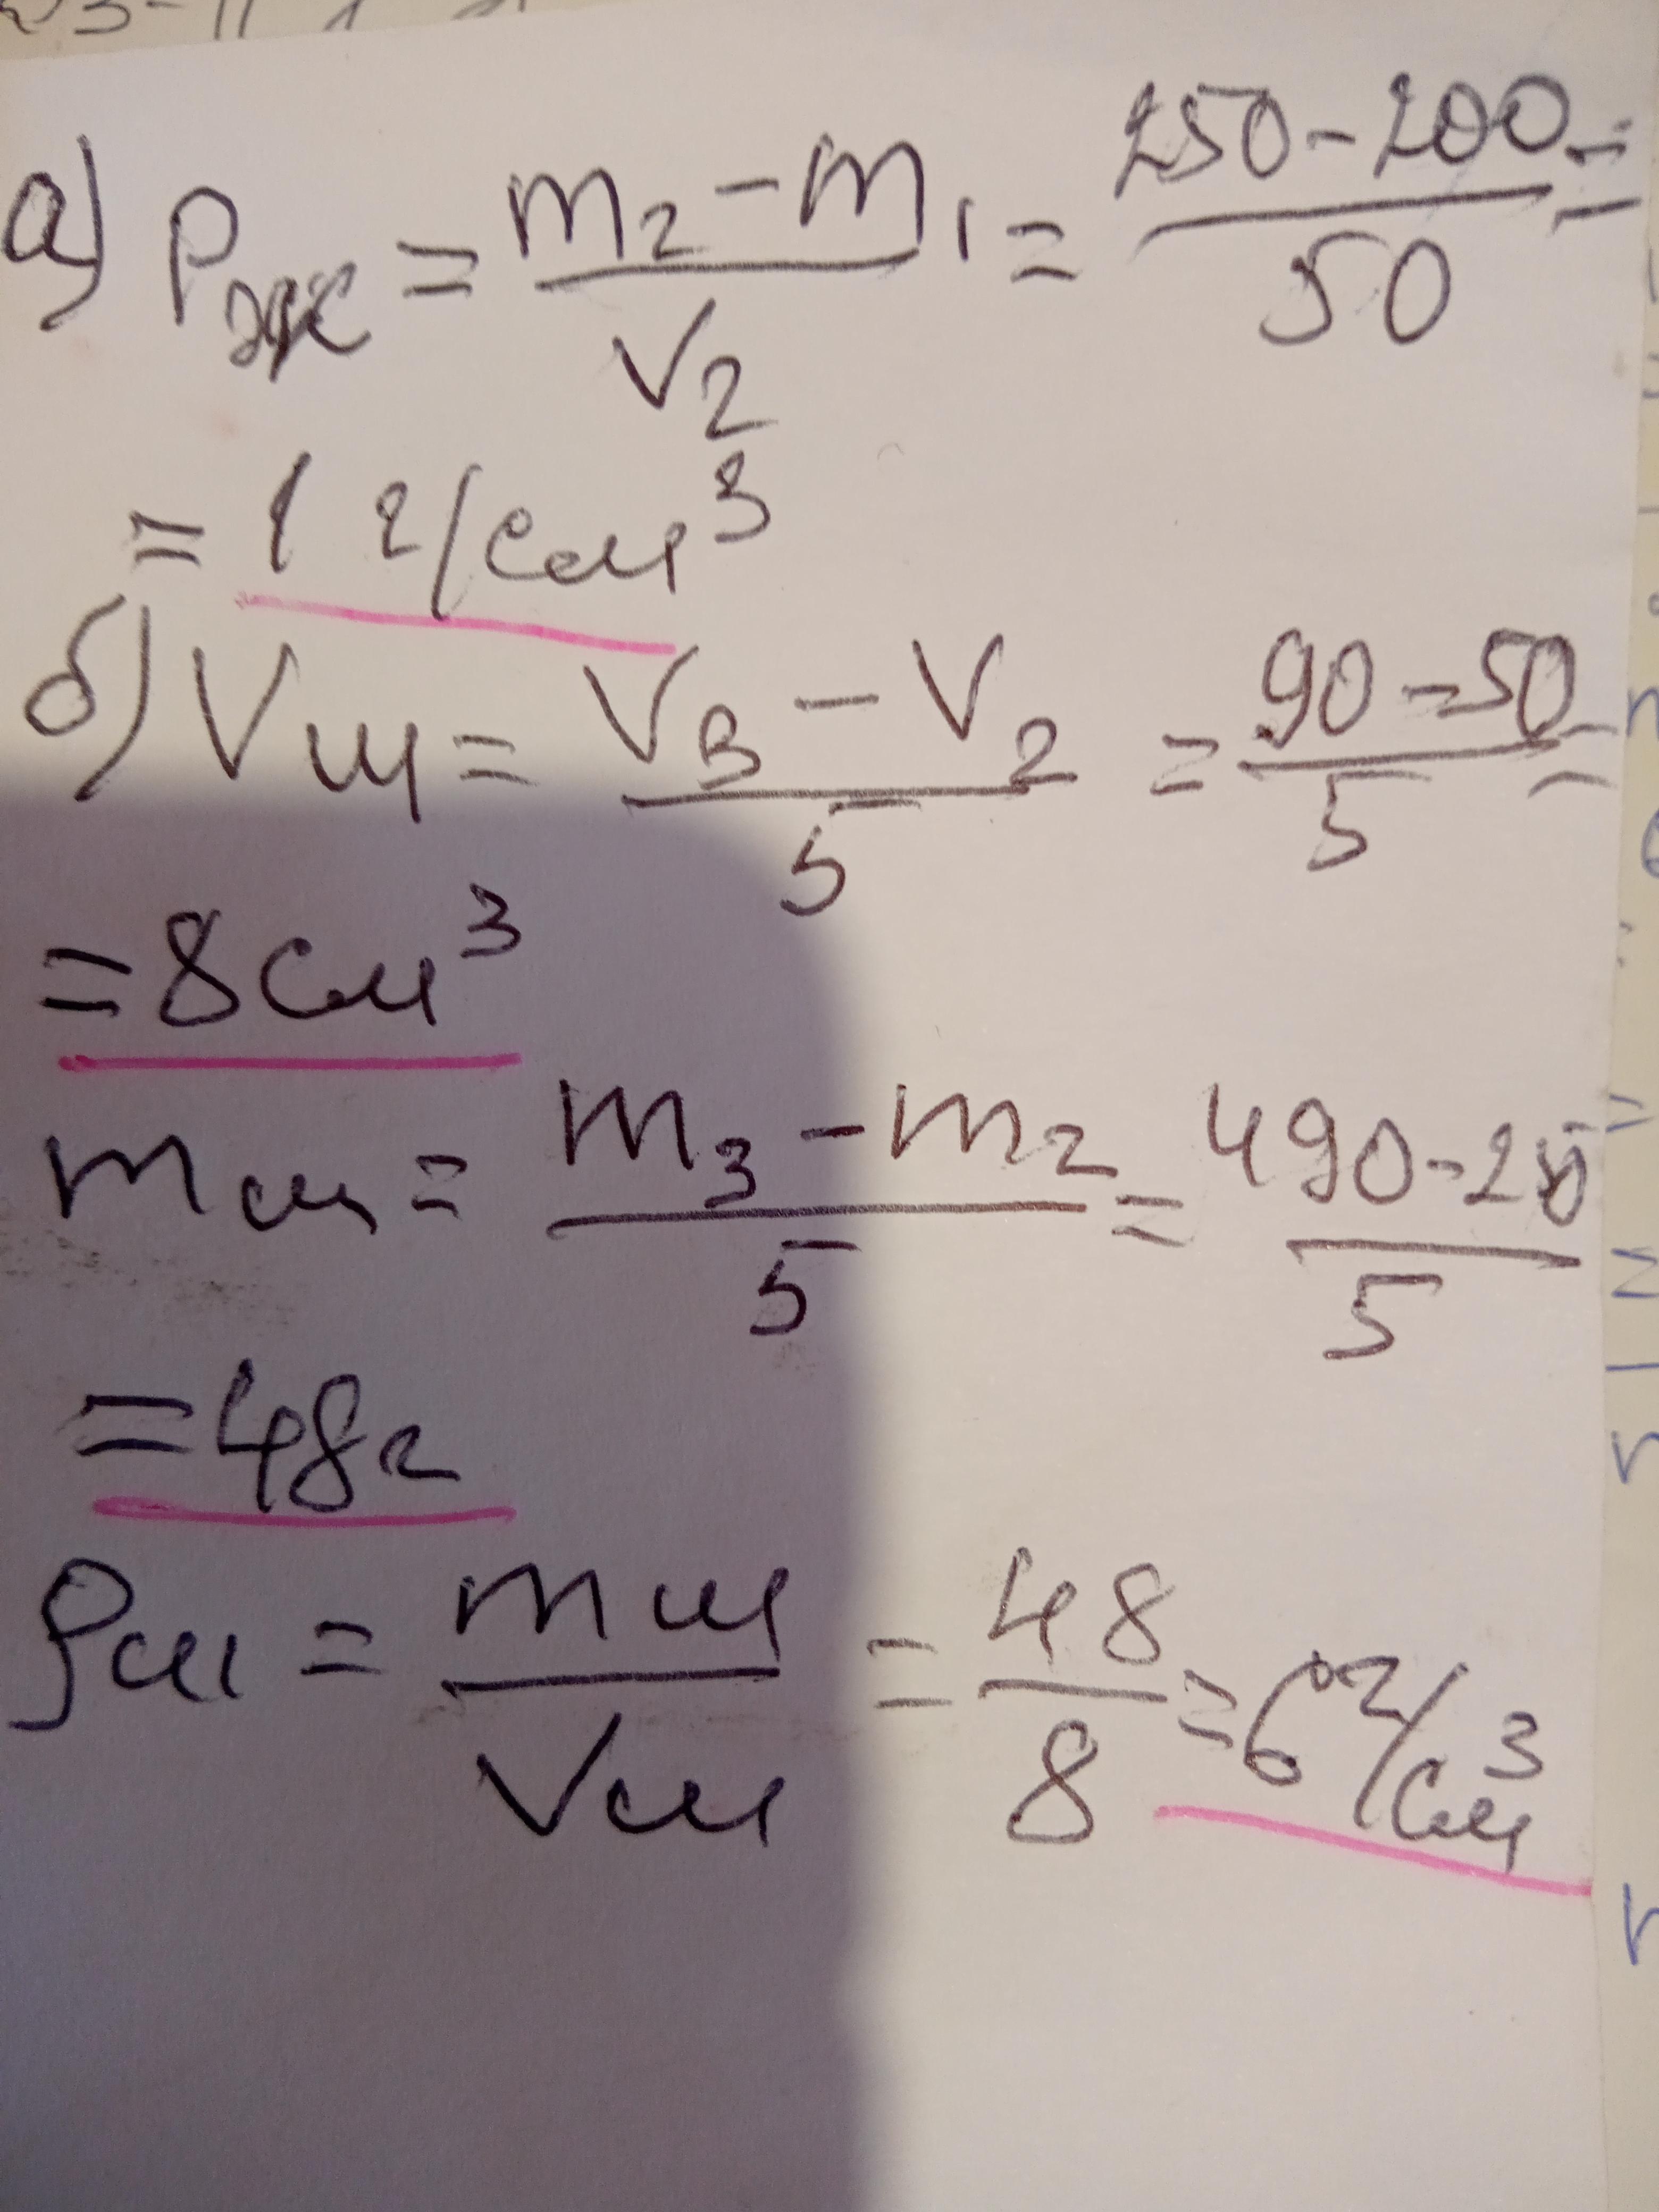 а) Pж = m₂ - m₁ / V₂ = 250 - 200 / 50 =
= 1 г/см³
б) Vш = V₃ - V₂ / 5 = 90 - 50 / 5 =
= 8 см³
mш = m₃ - m₂ / 5 = 490 - 250 / 5
= 48г
ρш = mш / Vш = 48 / 8 = 6 г/см³